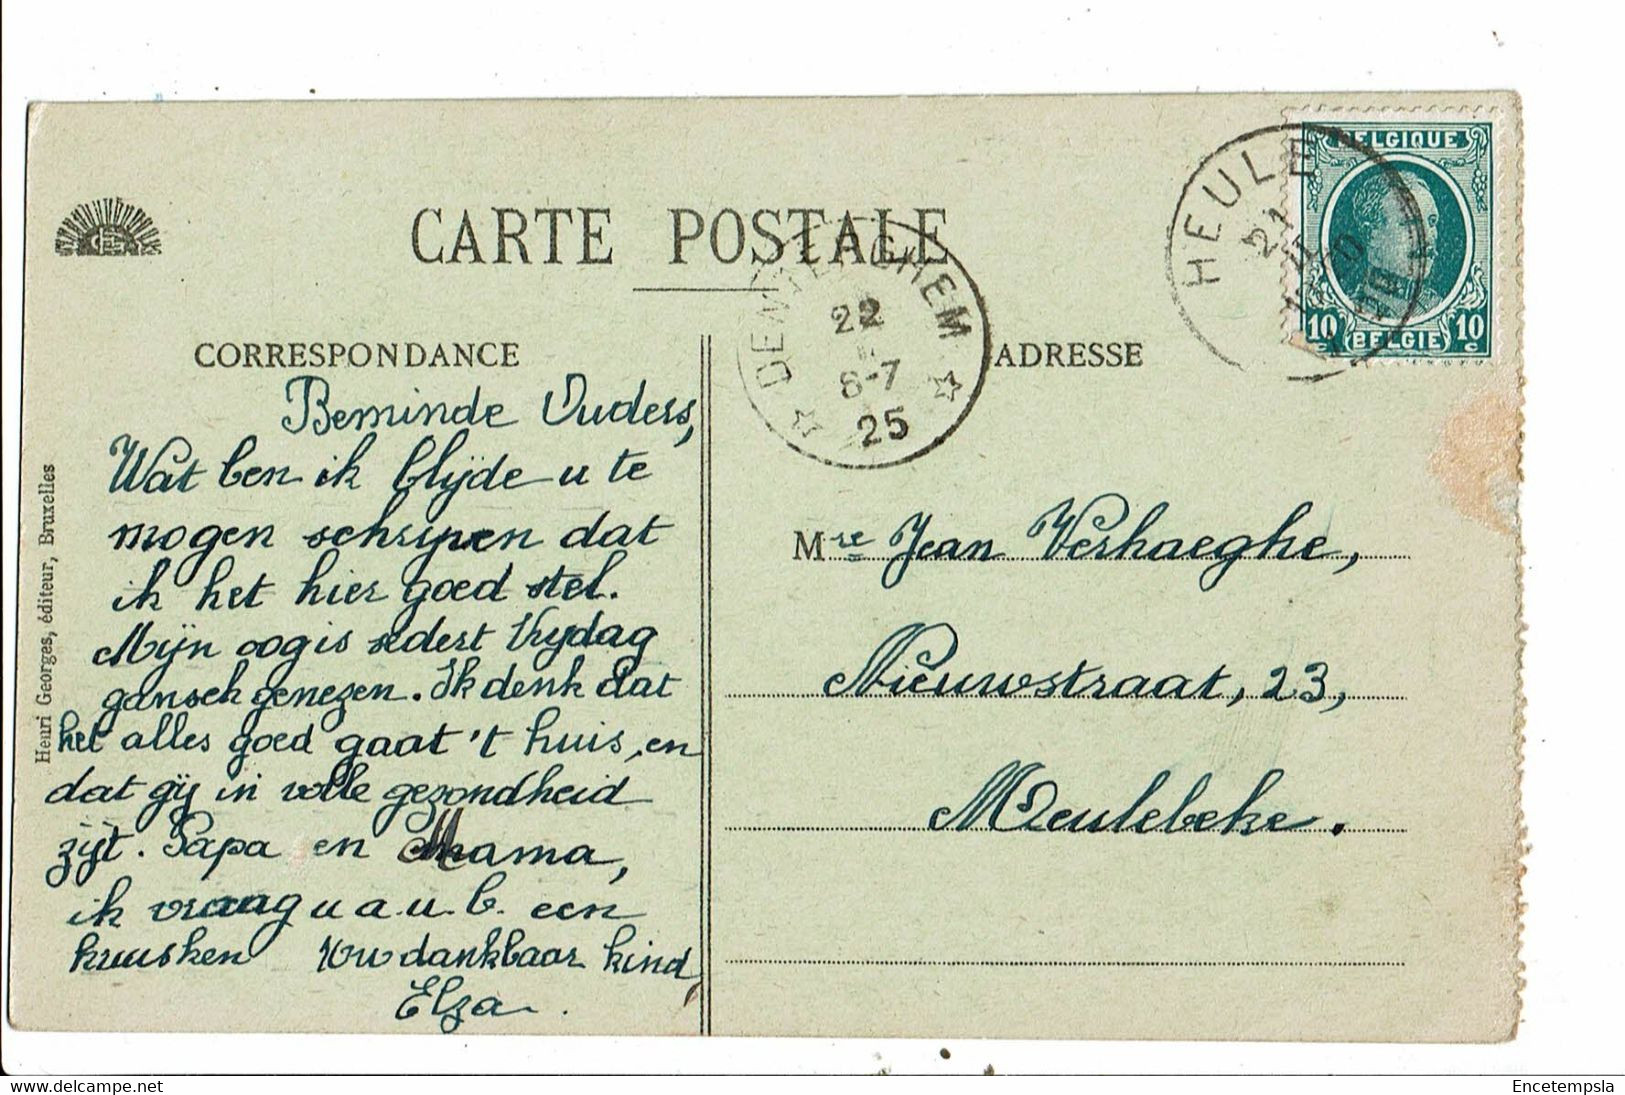 CARTE POSTALE
CORRESPONDANCE
ADRESSE
Henri Georges, éditeur, Bruxelles
HEULE
21
BELGIQUE
10 c
BELGIE
10 c
22
6-7
25
Beminde Ouders,
Wat ben ik blijde u te
mogen schrijven dat
ik het hier goed stel.
Mijn oog is sedert Vrijdag
gansch genezen. Ik denk dat
het alles goed gaat 't huis, en
dat gij in volle gezondheid
zijt. Papa en Mama,
ik vraag u a.u.b. een
kruusken Uw dankbaar kind,
Elza.
Mre Jean Verhaeghe,
Nieuwstraat, 23,
Meulebeke.
Encetempsla